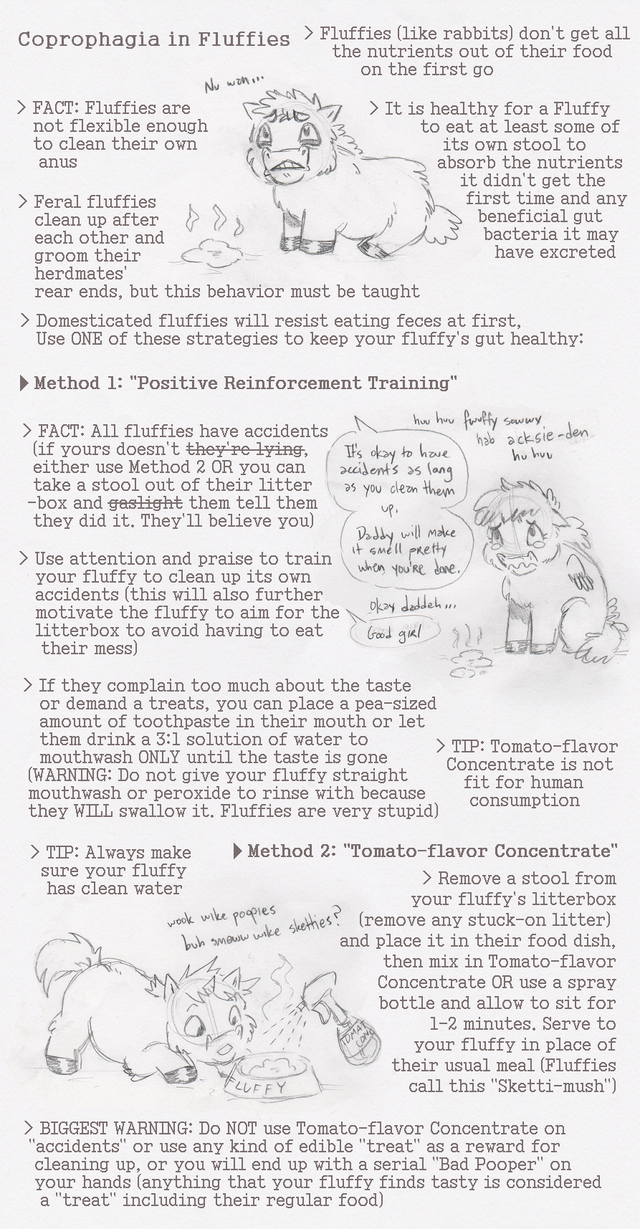 Coprophagia in Fluffies
> Fluffies (like rabbits) don't get all
the nutrients out of their food
on the first go
Nu wan...
> FACT: Fluffies are
not flexible enough
to clean their own
anus
> It is healthy for a Fluffy
to eat at least some of
its own stool to
absorb the nutrients
it didn't get the
first time and any
beneficial gut
bacteria it may
have excreted
> Feral fluffies
clean up after
each other and
groom their
herdmates'
rear ends, but this behavior must be taught
> Domesticated fluffies will resist eating feces at first,
Use ONE of these strategies to keep your fluffy's gut healthy:
Method 1: "Positive Reinforcement Training"
> FACT: All fluffies have accidents
(if yours doesn't they're lying,
either use Method 2 OR you can
take a stool out of their litter
-box and gaslight them tell them
they did it. They'll believe you)
huu huu fwuffy sowwy
hab acksie-den
hu huu
It's okay to have
accidents as long
as you clean them
up.
Daddy will make
it smell pretty
when you're done.
okay daddeh...
Good girl
> Use attention and praise to train
your fluffy to clean up its own
accidents (this will also further
motivate the fluffy to aim for the
litterbox to avoid having to eat
their mess)
> If they complain too much about the taste
or demand a treats, you can place a pea-sized
amount of toothpaste in their mouth or let
them drink a 3:1 solution of water to
mouthwash ONLY until the taste is gone
(WARNING: Do not give your fluffy straight
mouthwash or peroxide to rinse with because
they WILL swallow it. Fluffies are very stupid)
> TIP: Tomato-flavor
Concentrate is not
fit for human
consumption
> TIP: Always make
sure your fluffy
has clean water
Method 2: "Tomato-flavor Concentrate"
> Remove a stool from
your fluffy's litterbox
(remove any stuck-on litter)
and place it in their food dish,
then mix in Tomato-flavor
Concentrate OR use a spray
bottle and allow to sit for
1-2 minutes. Serve to
your fluffy in place of
their usual meal (Fluffies
call this "Sketti-mush")
wook wike poopies
buh smeww wike sketties?
FLUFFY
> BIGGEST WARNING: Do NOT use Tomato-flavor Concentrate on
"accidents" or use any kind of edible "treat" as a reward for
cleaning up, or you will end up with a serial "Bad Pooper" on
your hands (anything that your fluffy finds tasty is considered
a "treat" including their regular food)